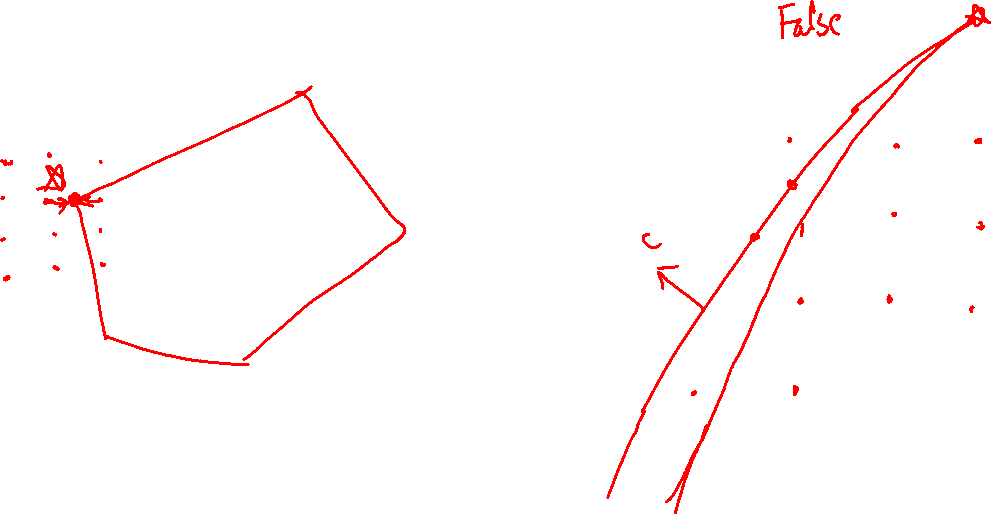 False
c